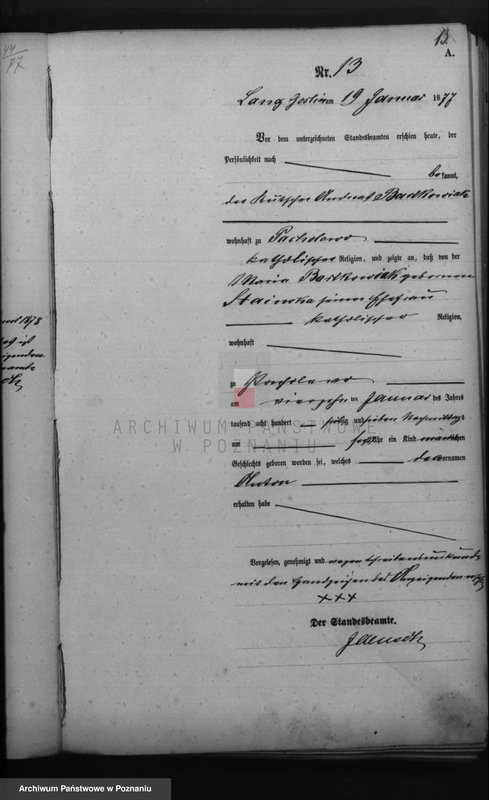 13
A.
Nr. 13
Lang Goslin am 19 Januar 1877
Vor dem unterzeichneten Standesbeamten erschien heute, der
Persönlichkeit nach
bekannt,
der Kutscher Andreas Bartkowiak
wohnhaft zu Pacholewo
katholischer Religion, und zeigte an, daß von der
Maria Bartkowiak geborenen
seiner Ehefrau
katholischer Religion,
wohnhaft
zu Pacholewo
am vierzehn ten Januar des Jahres
tausend acht hundert siebzig und sieben Nachmittags
um sechs Uhr ein Kind männlichen
Geschlechts geboren worden sei, welches den Vornamen
Anton
erhalten habe
Vorgelesen, genehmigt und wegen Schreibensunkunde
mit den Handzeichen des Anzeigenden
+++
Der Standesbeamte.
44
77
ARCHIWUM PAŃSTWOWE
W POZNANIU
Archiwum Państwowe w Poznaniu